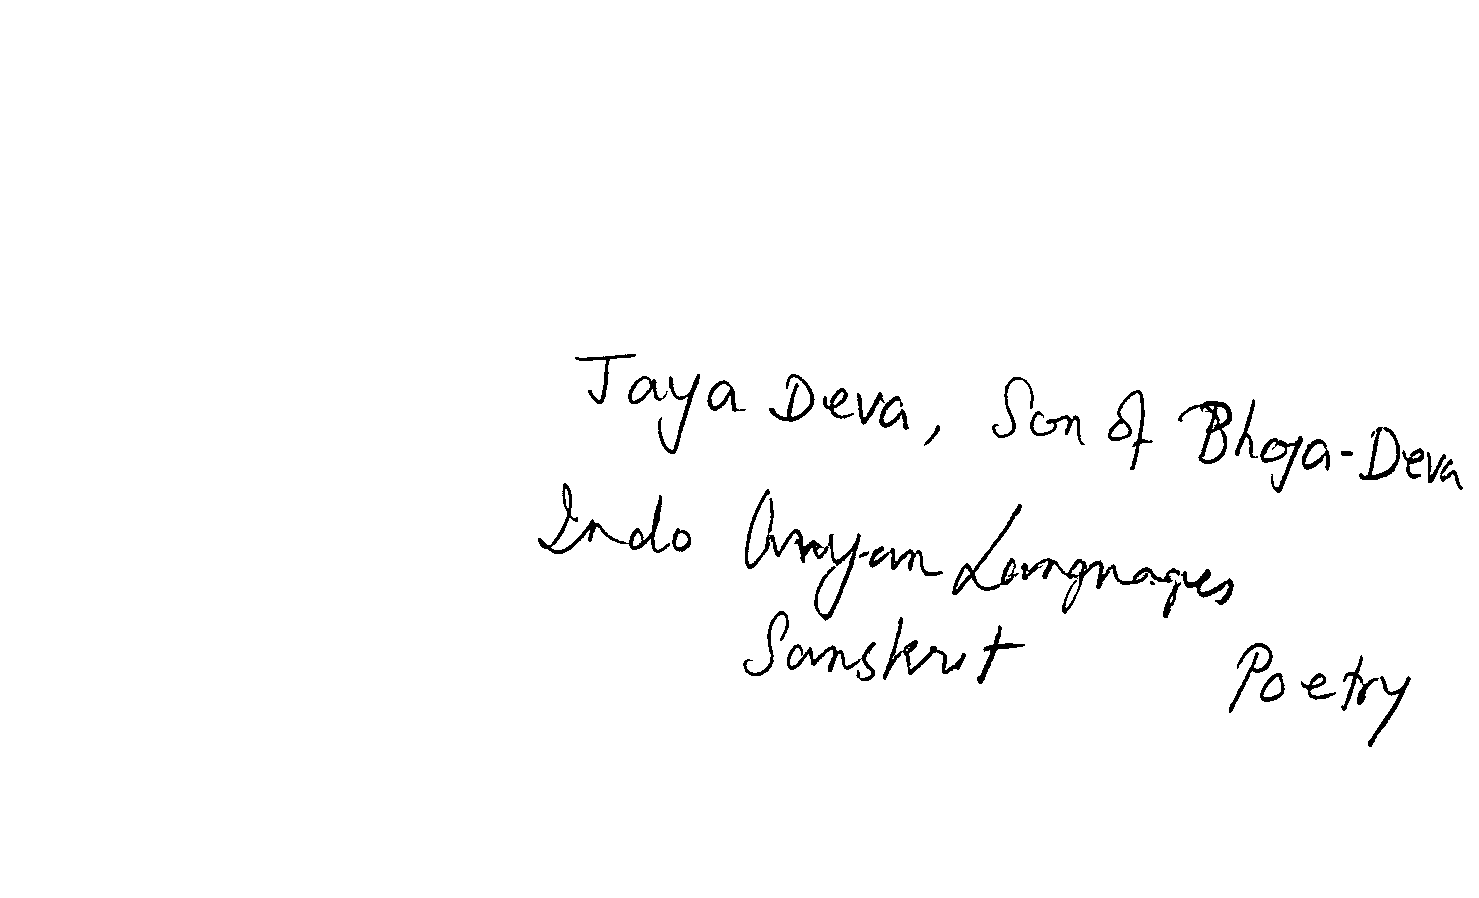 Jaya Deva, Son of Bhoja-Deva
Indo Aryan Languages
Sanskrit Poetry